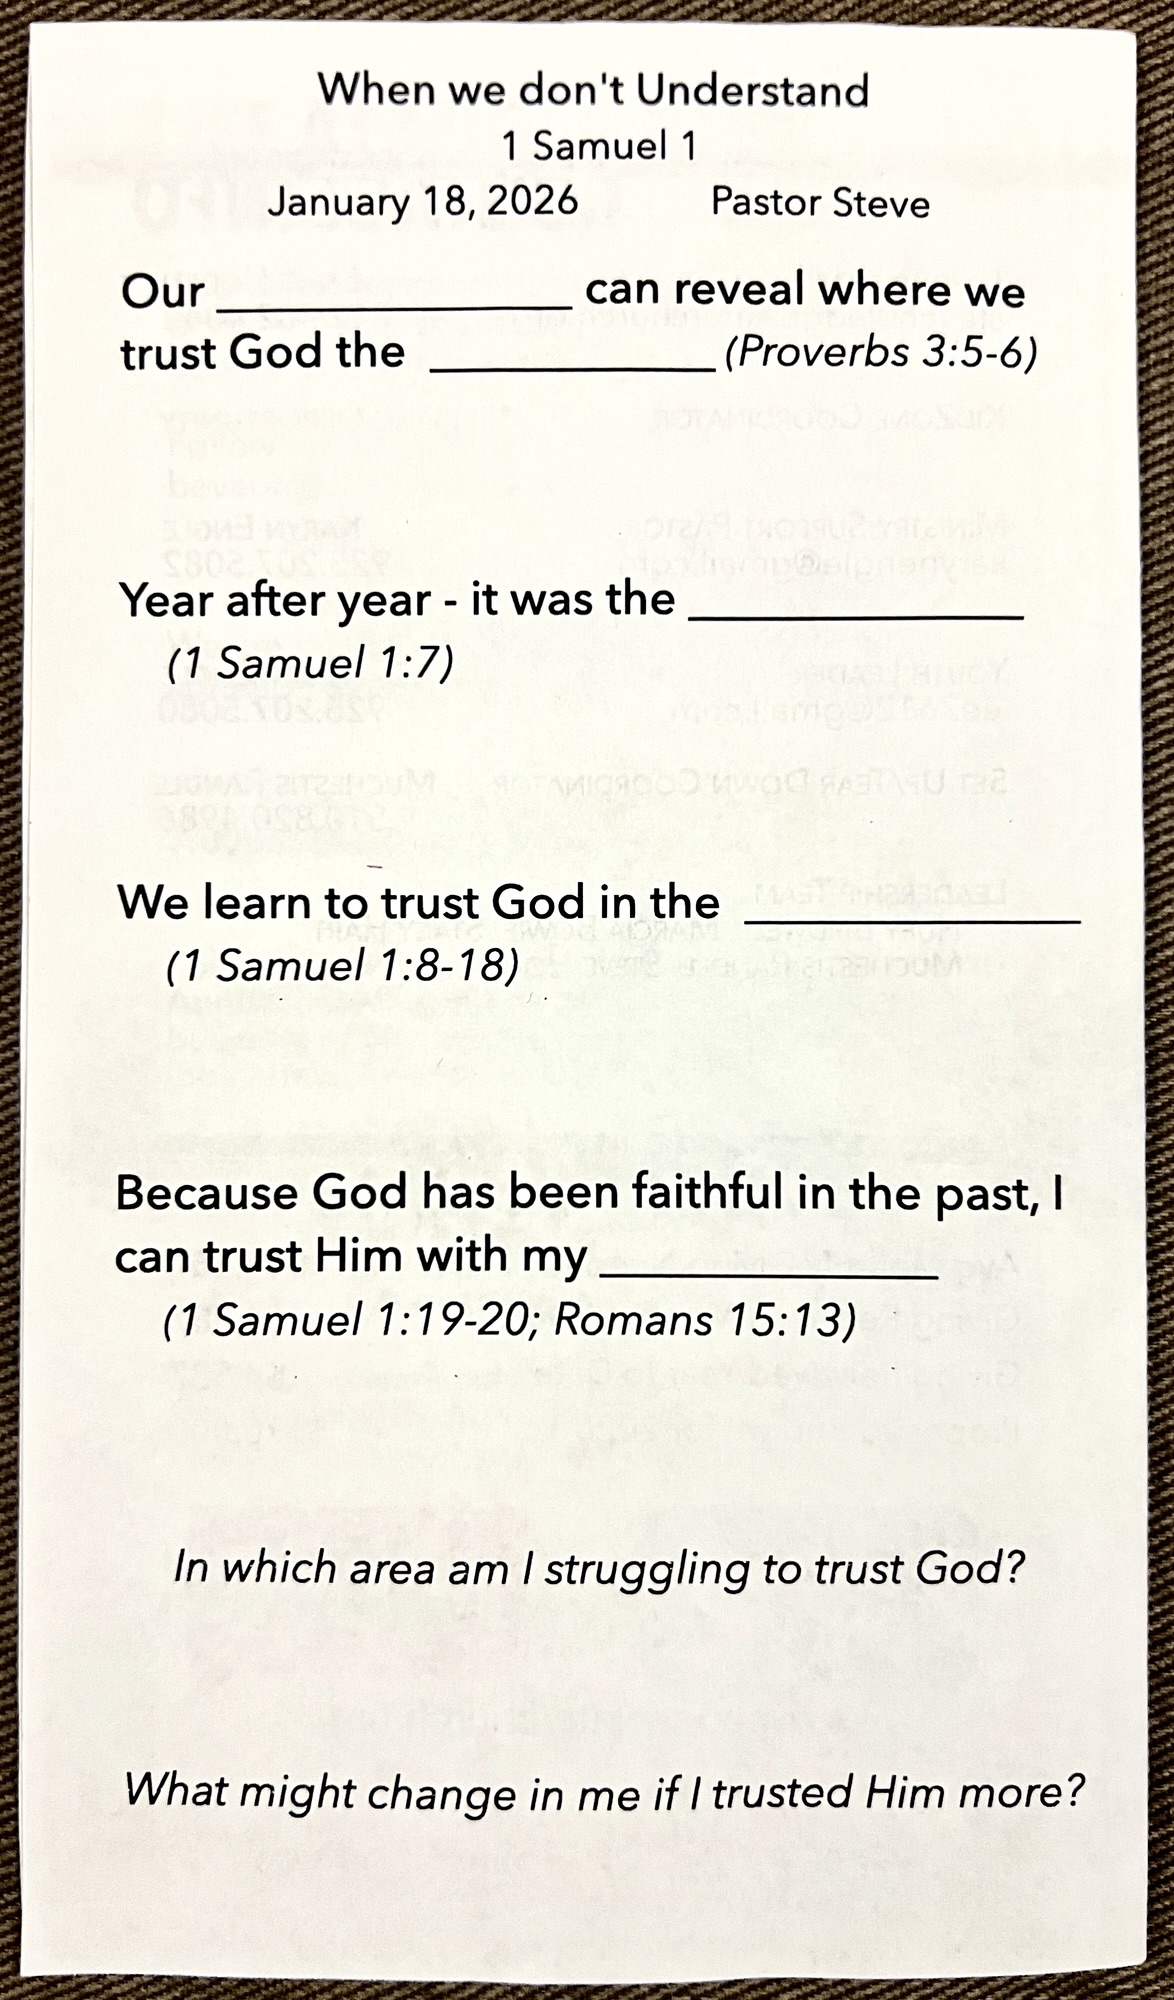 When we don't Understand
1 Samuel 1
January 18, 2026 Pastor Steve
Our ______________ can reveal where we
trust God the ___________ (Proverbs 3:5-6)
Year after year - it was the _____________
(1 Samuel 1:7)
We learn to trust God in the _____________
(1 Samuel 1:8-18)
Because God has been faithful in the past, I
can trust Him with my _____________
(1 Samuel 1:19-20; Romans 15:13)
In which area am I struggling to trust God?
What might change in me if I trusted Him more?